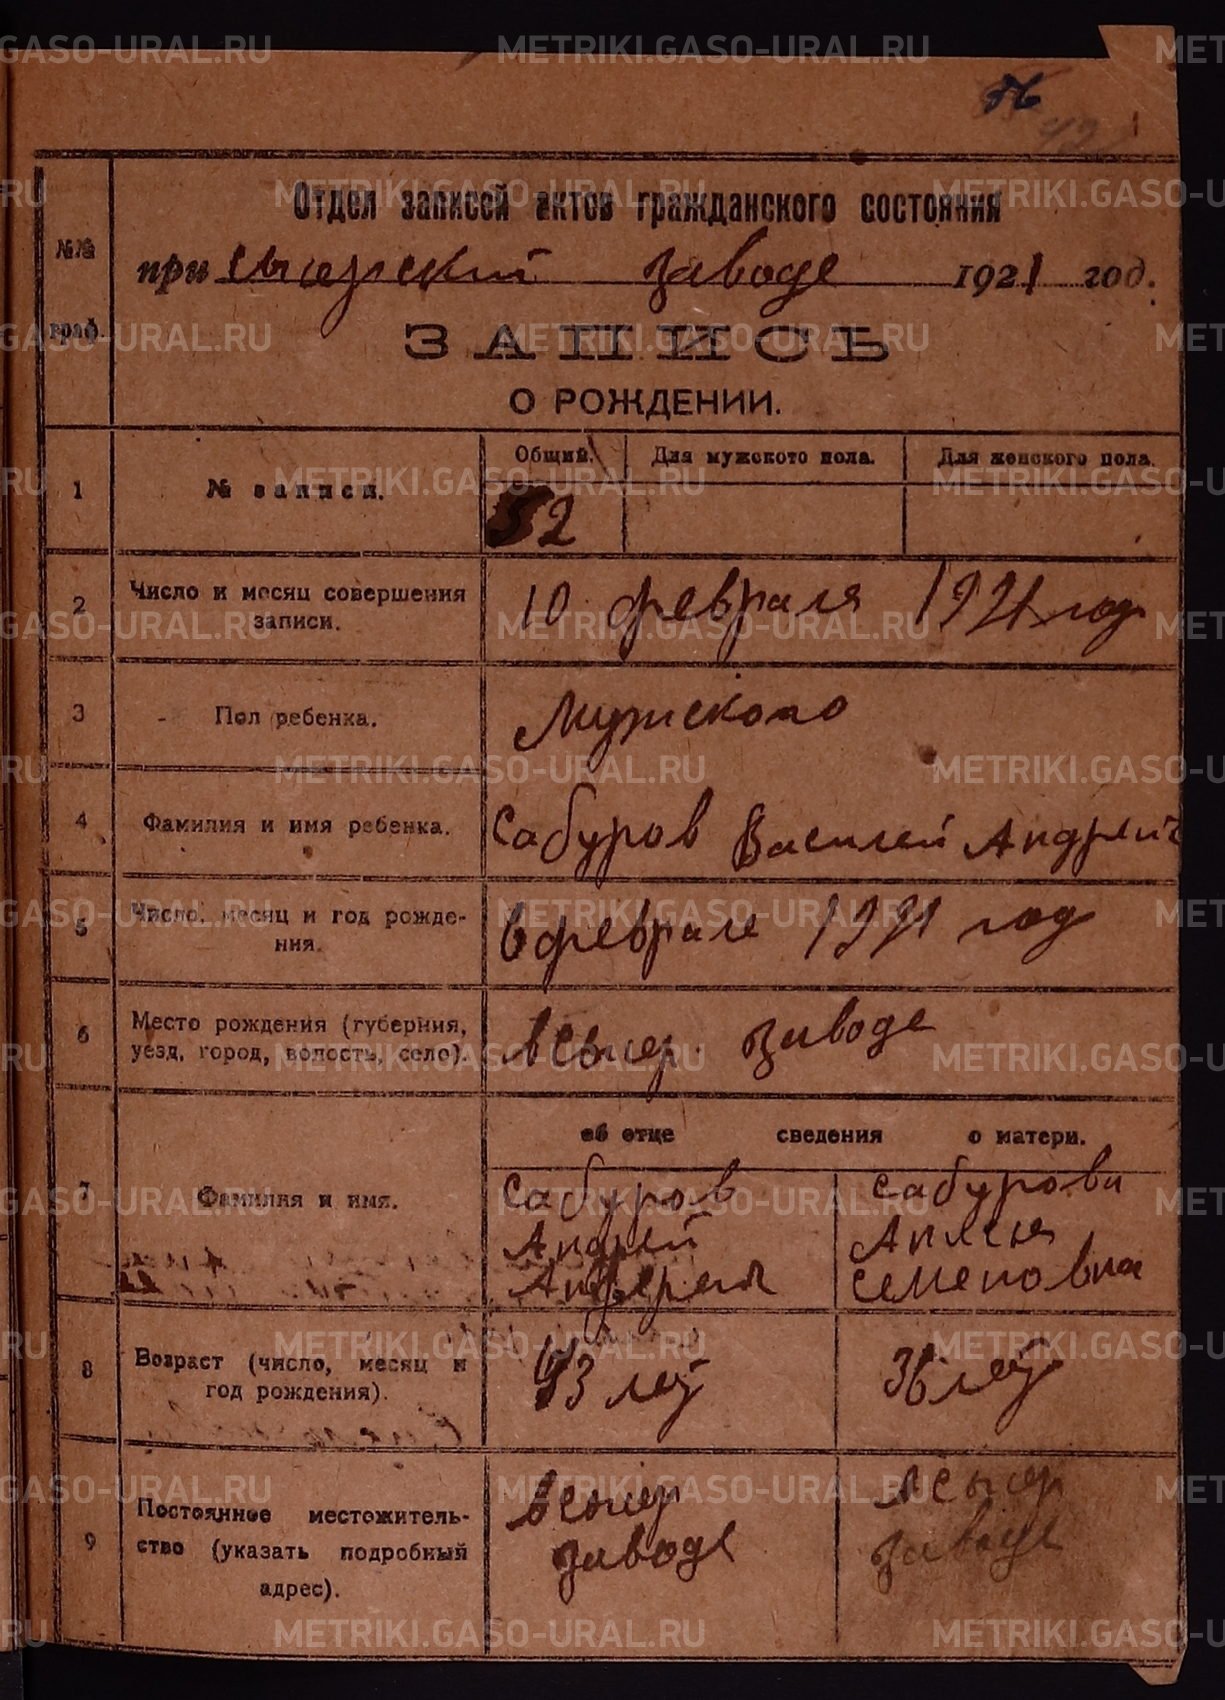 Отдел записей актов гражданского состояния
№№ граф.
при заводе 1921 год.
ЗАПИСЬ
О РОЖДЕНИИ.
Общий. Для мужского пола. Для женского пола.
1 № записи. 52
2 Число и месяц совершения записи. 10 февраля 1921 год
3 Пол ребенка. Мужского
4 Фамилия и имя ребенка. Сабуров Василей Андреич
5 Число, месяц и год рожде-
ния. 6 феврале 1921 год
6 Место рождения (губерния,
уезд, город, волость, село). заводе
об отце сведения о матери.
7 Фамилия и имя. Сабуров Сабурова
Андрей
Семеновна
8 Возраст (число, месяц и
год рождения). 43 лет 36 лет
9 Постоянное местожитель-
ство (указать подробный
адрес). заводе заводе
METRIKI.GASO-URAL.RU